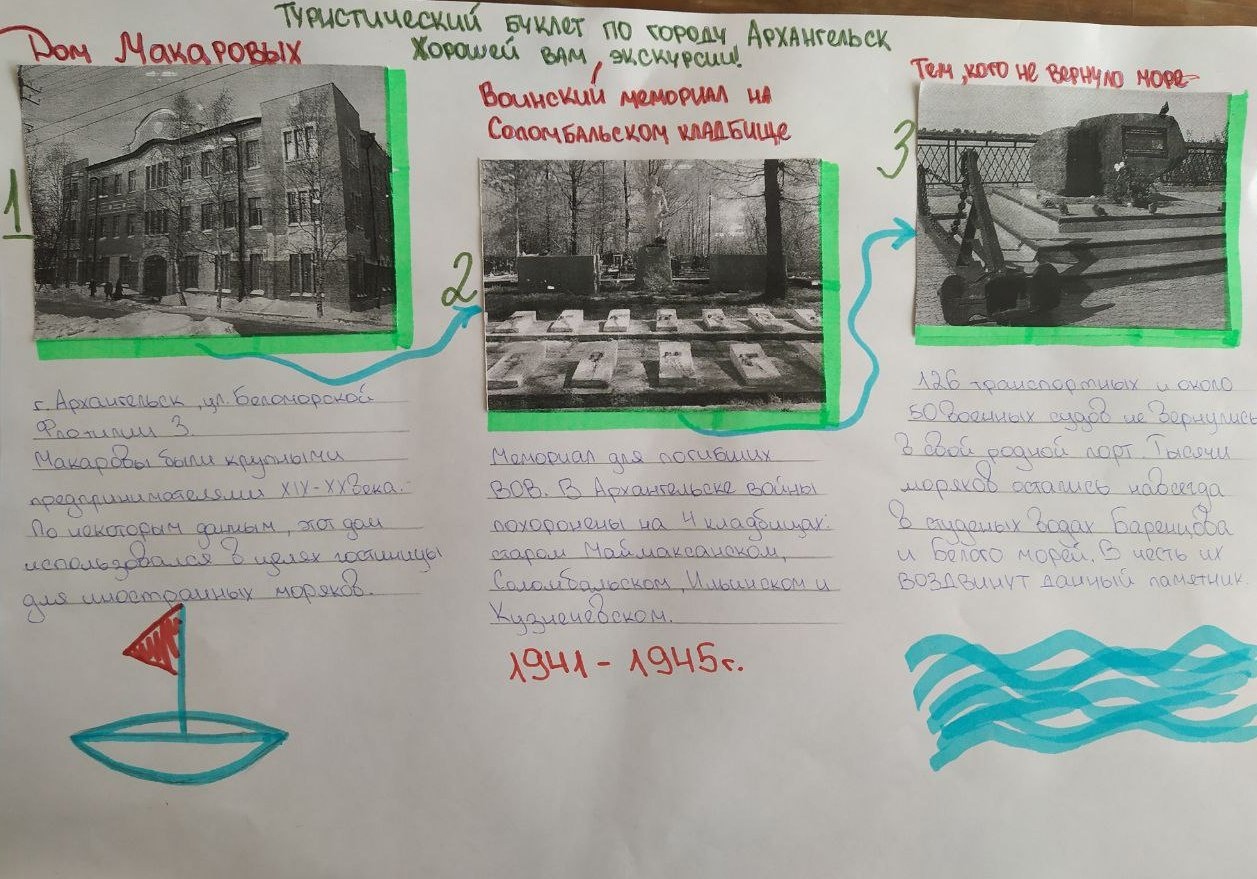 Туристический буклет по городу Архангельск
Хорошей вам экскурсии!
Дом Макаровых
1
г. Архангельск, ул. Беломорской
Флотилии 3.
Макаровы были крупными
предпринимателями XIX-XX века.
По некоторым данным, этот дом
использовался в целях гостиницы
для иностранных моряков.
Воинский мемориал на
Соломбальском кладбище
2
Мемориал для погибших
ВОВ. В Архангельске войны
похоронены на 4 кладбищах:
старом Маймаксанском,
Соломбальском, Ильинском и
Кузнечевском.
1941 - 1945г.
Тем, кого не вернуло море
3
126 транспортных и около
50 военных судов не вернулись
в свой родной порт. Тысячи
моряков остались навсегда
в студеных водах Баренцова
и Белого морей. В честь их
воздвинут данный памятник.